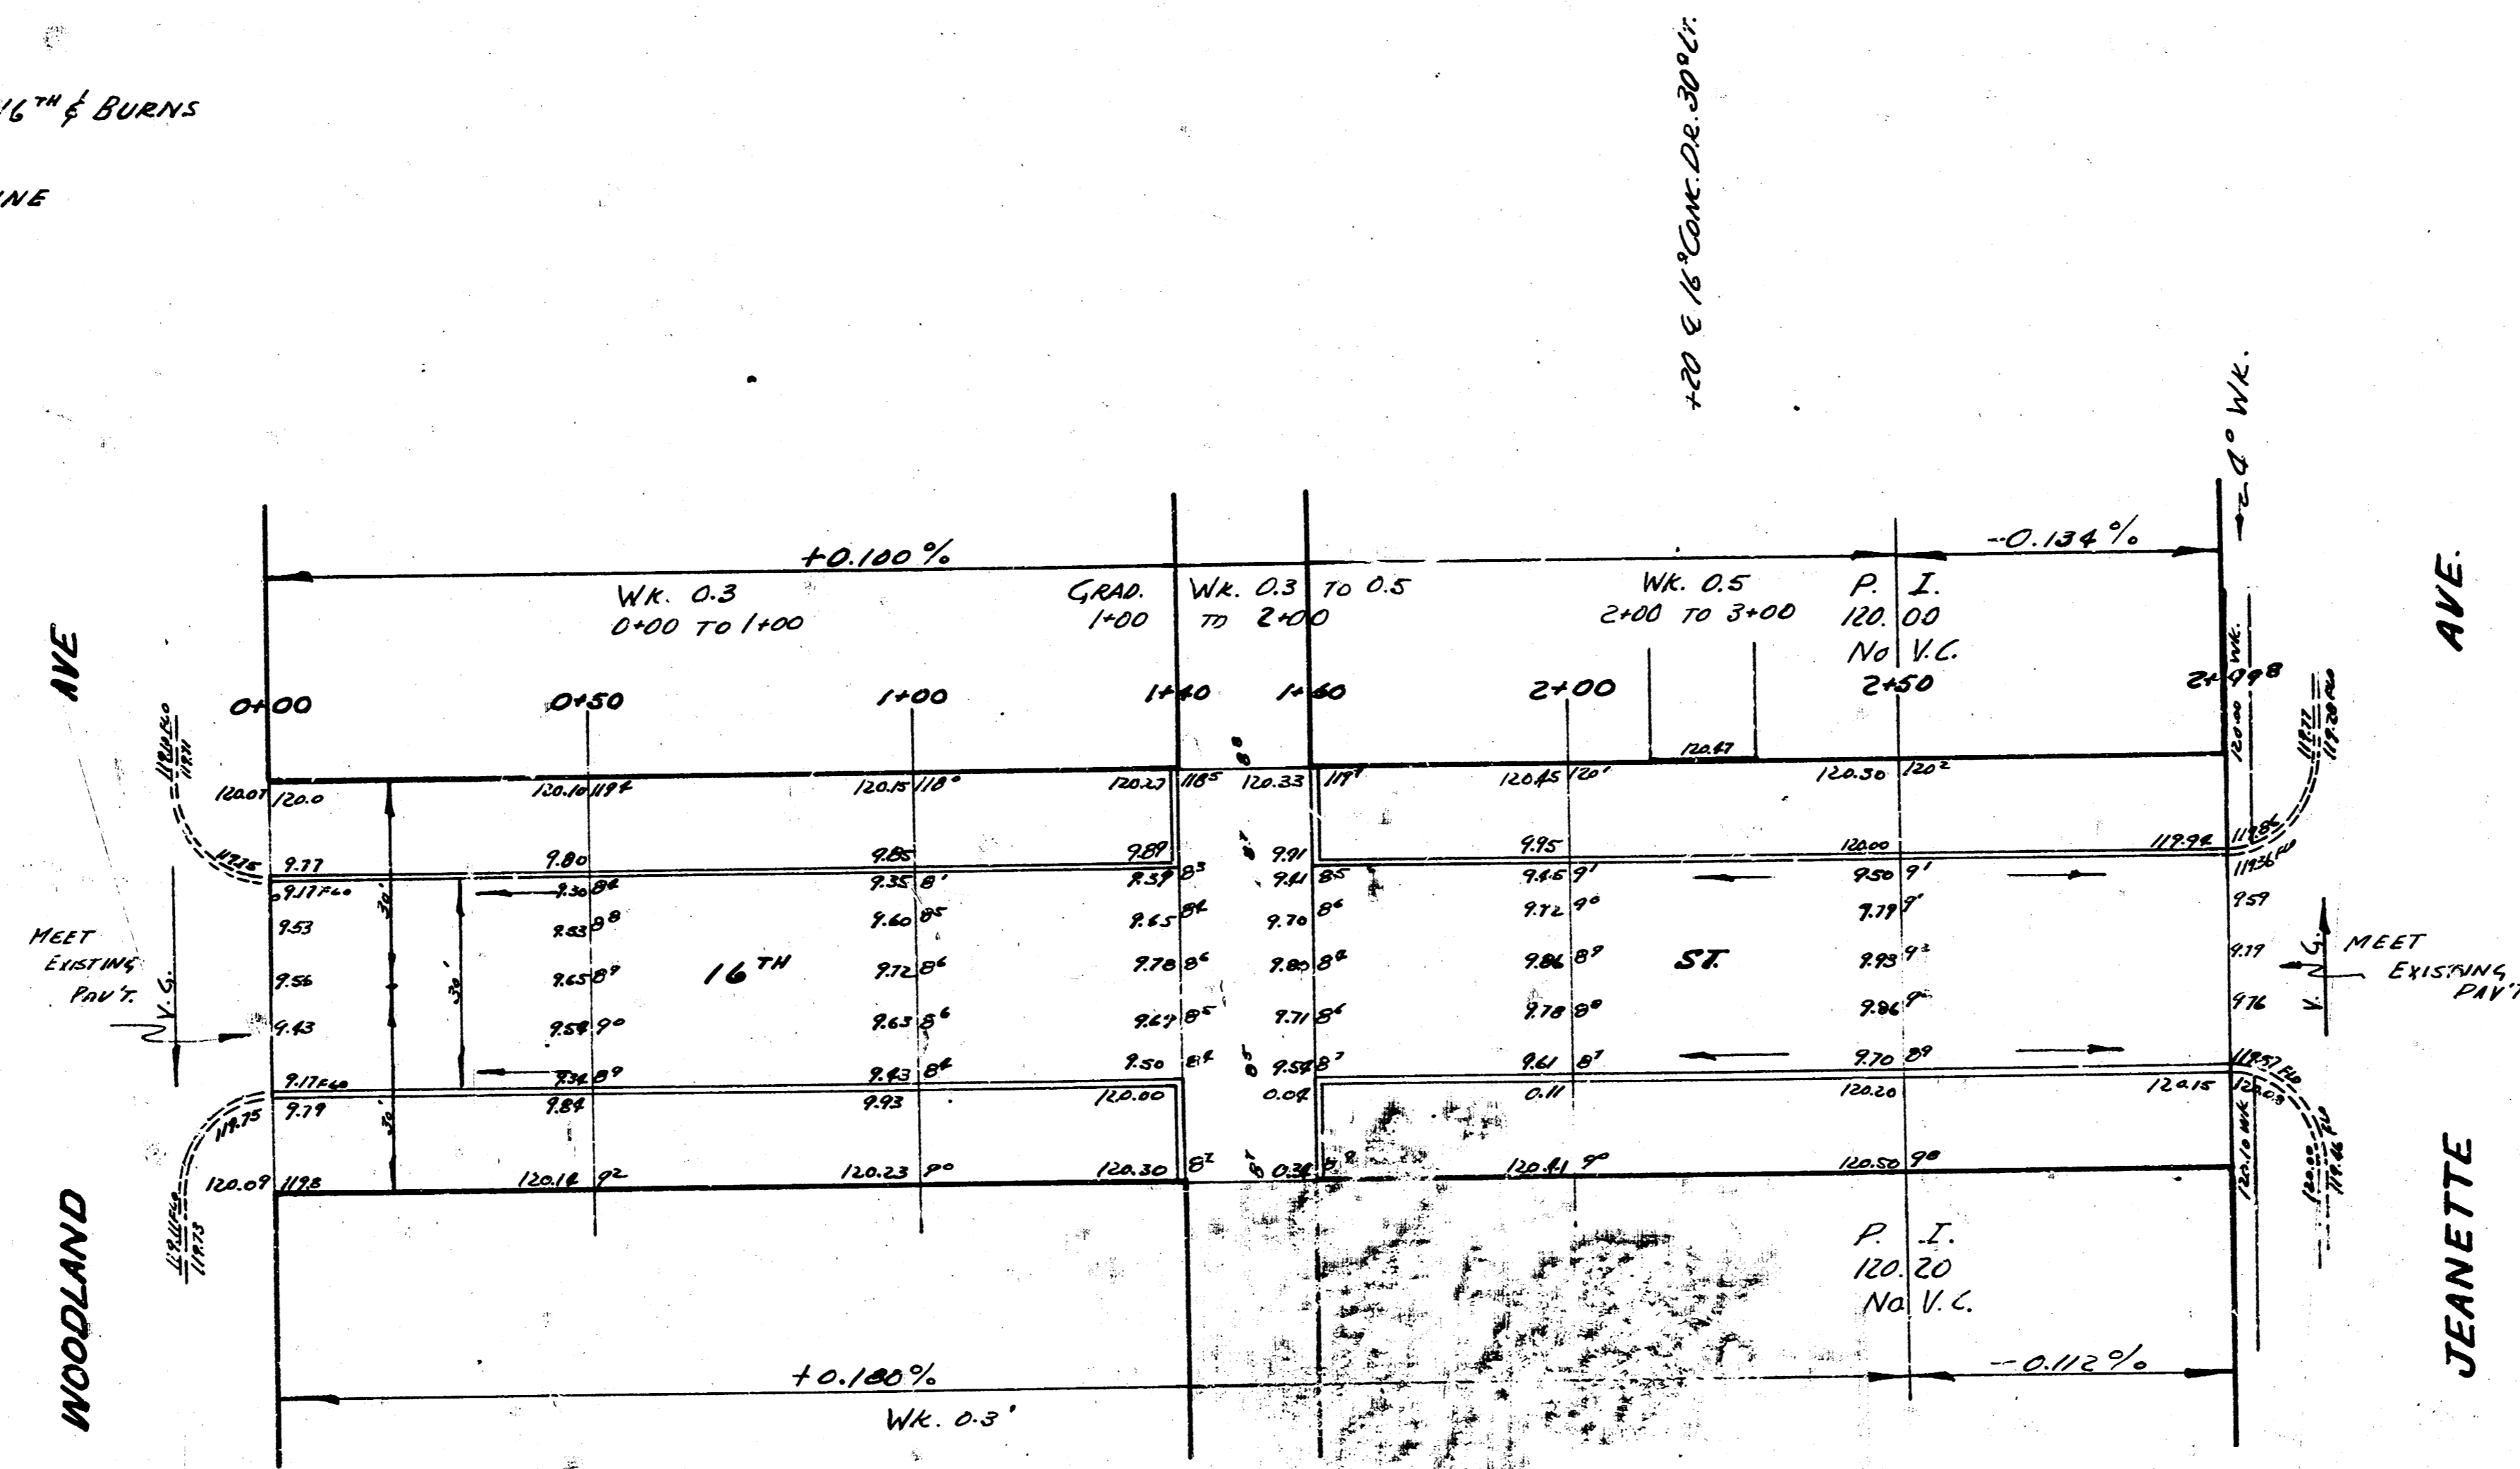 16TH & BURNS
+20 ℄ 16° CONC. DR. 30° LT.
4° WK.
+0.100%
-0.134%
WK. 0.3
0+00 TO 1+00
GRAD. WK. 0.3 TO 0.5
1+00 TO 2+00
WK. 0.5
2+00 TO 3+00
P. I.
120.00
No V.C.
AVE
AVE.
0+00 0+50 1+00 1+40 1+60 2+00 2+50 2+99⁸
120.47
120.07 120.0 120.10 119⁴ 120.15 118° 120.27 118⁵ 120.33 120.45 120' 120.50 120²
120.00 WK.
119.71
119.77
119.20 FLO
9.77 9.80 9.85 9.89 9.91 9.95 120.00 119.94 119.86
9.17 FLO 9.30 8⁴ 9.35 8' 9.39 8³ 9.41 8⁵ 9.45 9' 9.50 9' 119.36 FLO
9.53 9.53 8⁸ 9.60 8⁵ 9.65 8⁴ 9.70 8⁶ 9.72 9⁰ 9.79 9' 9.59
9.56 9.65 8⁹ 16TH 9.72 8⁶ 9.78 8⁶ 9.80 8⁴ 9.86 8⁹ ST. 9.93 9.79
9.43 9.54 9⁰ 9.63 8⁶ 9.67 8⁵ 9.71 8⁶ 9.78 8⁸ 9.86 9.76
9.17 FLO 9.34 8⁹ 9.43 8⁴ 9.50 8⁴ 9.54 8⁷ 9.61 8⁷ 9.70 8⁹ 119.57 FLO
119.75 9.79 9.84 9.93 120.00 0.04 0.11 120.20 120.15
120.09 119.8 120.14 9² 120.23 9⁰ 120.30 8² 0.34 120.41 9⁰ 120.50 9⁰
30'
30'
30'
MEET
EXISTING
PAV'T.
V. G.
MEET
EXISTING
PAV'T
V. G.
119.11 FLO
119.73
120.10 WK
120.00
119.46 FLO
P. I.
120.20
No V.C.
+0.180%
-0.112%
WK. 0.3'
WOODLAND
JEANETTE